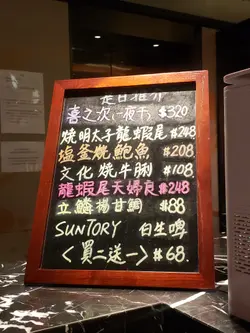 是日推介
喜之次(一夜干) $320
燒明太子龍蝦尾 $248
塩釜燒鮑魚 $208
文化燒牛脷 $108
龍蝦尾天婦良 $248
立鱗揚甘鯛 $88
SUNTORY 白生啤
<買二送一> $68.